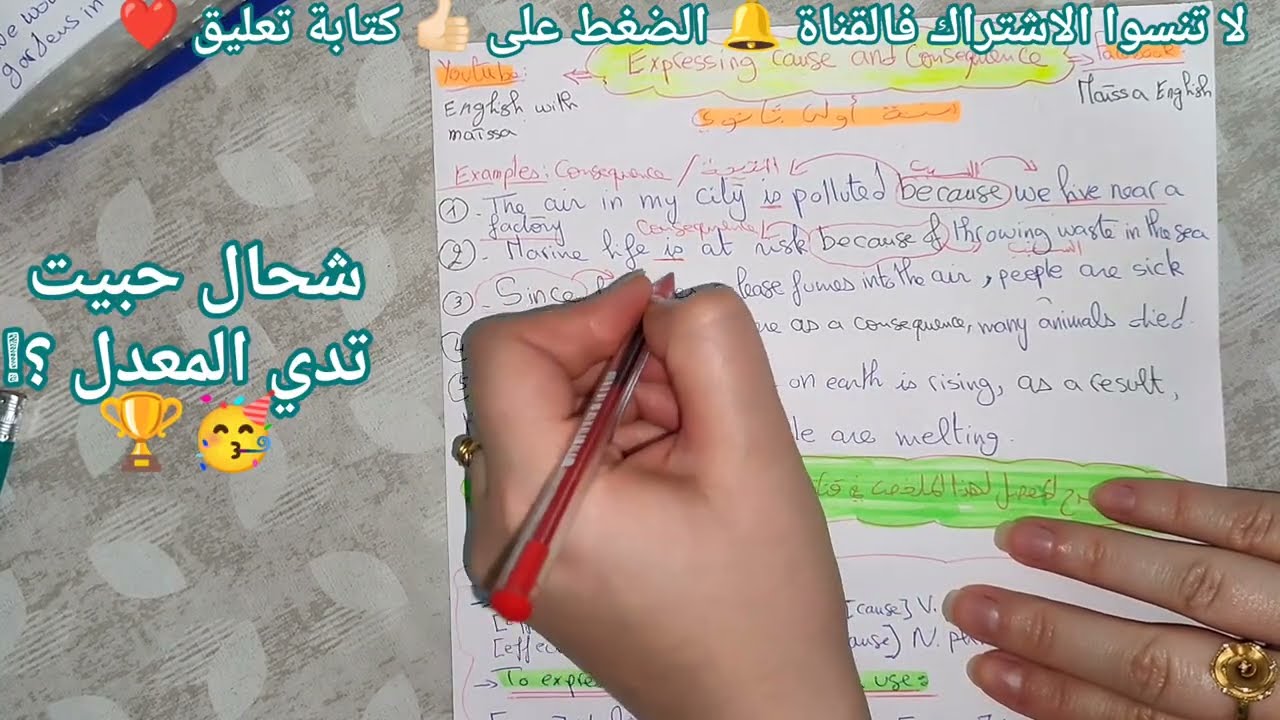 لا تنسوا الاشتراك فالقناة 🔔 الضغط على 👍🏻 كتابة تعليق ❤️
we wou
gardens in
Youtube:
Expressing cause and Consequence
Facebook
English with
maïssa
Maïssa English
سنة أولى ثانوي
Examples: Consequence / النتيجة السبب
①. The air in my city is polluted because we live near a
factory Consequence
②. Marine life is at risk because of throwing waste in the sea
السبب
③. Since lease fumes into the air, people are sick
as a consequence, many animals died.
on earth is rising, as a result,
are melting.
لهذا الملخص في
[cause] V.
[effec cause] N.
→ To expre use:
شحال حبيت
تدي المعدل ؟!
🏆 🥳